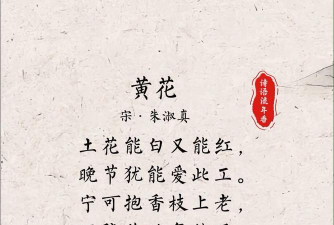 黄花
宋·朱淑真
土花能白又能红，
晚节犹能爱此工。
宁可抱香枝上老，
诗语流年香